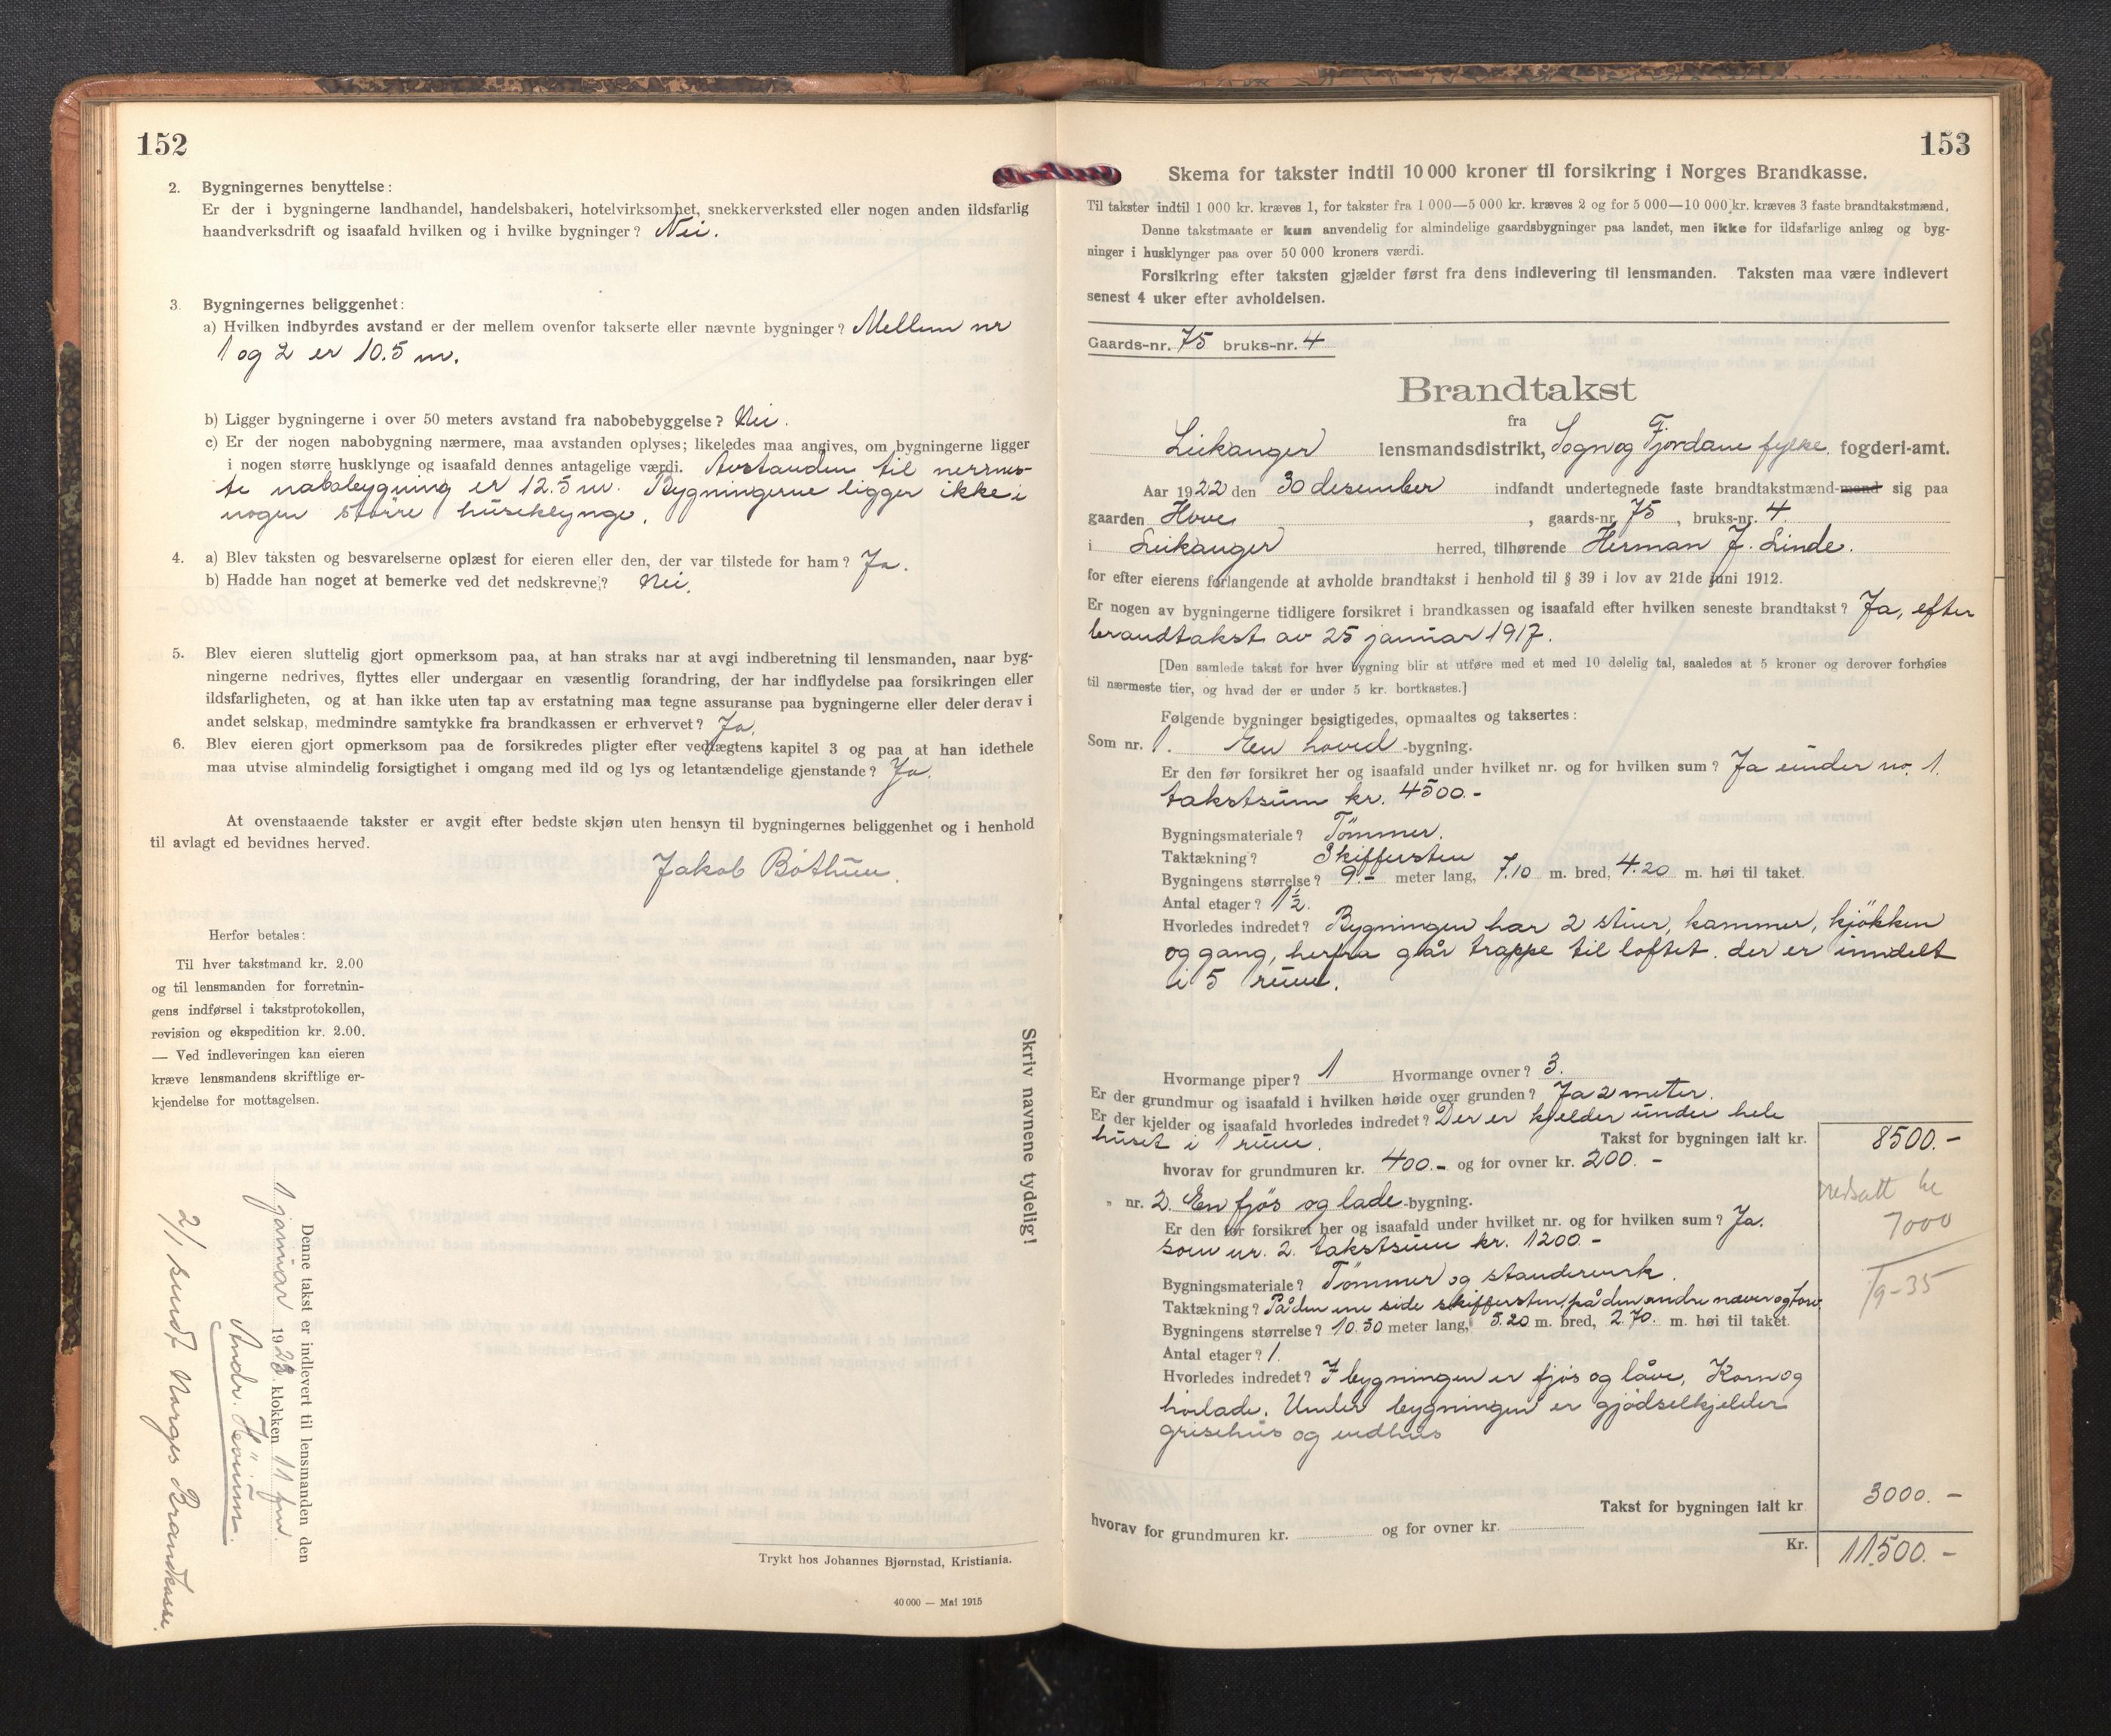 152
2. Bygningernes benyttelse:
Er der i bygningerne landhandel, handelsbakeri, hotelvirksomhet, snekkerverksted eller nogen anden ildsfarlig
haandverksdrift og isaafald hvilken og i hvilke bygninger? Nei.
3. Bygningernes beliggenhet:
a) Hvilken indbyrdes avstand er der mellem ovenfor takserte eller nævnte bygninger? Mellem nr
1 og 2 er 10.5 m.
b) Ligger bygningerne i over 50 meters avstand fra nabobebyggelse? Nei.
c) Er der nogen nabobygning nærmere, maa avstanden oplyses; likeledes maa angives, om bygningerne ligger
i nogen større husklynge og isaafald dennes antagelige værdi. Avstanden til nermes-
te nabobygning er 12.5 m. Bygningerne ligger ikke i
nogen större huseklynge.
4. a) Blev taksten og besvarelserne oplæst for eieren eller den, der var tilstede for ham? Ja.
b) Hadde han noget at bemerke ved det nedskrevne? Nei.
5. Blev eieren sluttelig gjort opmerksom paa, at han straks har at avgi indberetning til lensmanden, naar byg-
ningerne nedrives, flyttes eller undergaar en væsentlig forandring, der har indflydelse paa forsikringen eller
ildsfarligheten, og at han ikke uten tap av erstatning maa tegne assuranse paa bygningerne eller deler derav i
andet selskap, medmindre samtykke fra brandkassen er erhvervet? Ja.
6. Blev eieren gjort opmerksom paa de forsikredes pligter efter vedtægtens kapitel 3 og paa at han idethele
maa utvise almindelig forsigtighet i omgang med ild og lys og letantændelige gjenstande? Ja.
At ovenstaaende takster er avgit efter bedste skjøn uten hensyn til bygningernes beliggenhet og i henhold
til avlagt ed bevidnes herved.
Jakob Böthun.
Herfor betales:
Til hver takstmand kr. 2.00
og til lensmanden for forretnin-
gens indførsel i takstprotokollen,
revision og ekspedition kr. 2.00.
— Ved indleveringen kan eieren
kræve lensmandens skriftlige er-
kjendelse for mottagelsen.
Skriv navnene tydelig!
Denne takst er indlevert til lensmanden den
1 januar 1923. klokken 11 fm.
Andr.
2/1 sendt Norges Brandkasse.
Trykt hos Johannes Bjørnstad, Kristiania.
40 000 — Mai 1915
153
Skema for takster indtil 10 000 kroner til forsikring i Norges Brandkasse.
Til takster indtil 1 000 kr. kræves 1, for takster fra 1 000—5 000 kr. kræves 2 og for 5 000—10 000 kr. kræves 3 faste brandtakstmænd.
Denne takstmaate er kun anvendelig for almindelige gaardsbygninger paa landet, men ikke for ildsfarlige anlæg og byg-
ninger i husklynger paa over 50 000 kroners værdi.
Forsikring efter taksten gjælder først fra dens indlevering til lensmanden. Taksten maa være indlevert
senest 4 uker efter avholdelsen.
Gaards-nr. 75 bruks-nr. 4
Brandtakst
fra
Leikanger lensmandsdistrikt, Sogn og Fjordane fylke. fogderi-amt.
Aar 1922 den 30 desember indfandt undertegnede faste brandtakstmænd-mand sig paa
gaarden Hove, gaards-nr. 75, bruks-nr. 4.
i Leikanger herred, tilhørende Herman J. Linde.
for efter eierens forlangende at avholde brandtakst i henhold til § 39 i lov av 21de juni 1912.
Er nogen av bygningerne tidligere forsikret i brandkassen og isaafald efter hvilken seneste brandtakst? Ja, efter
brandtakst av 25 januar 1917.
[Den samlede takst for hver bygning blir at utføre med et med 10 delelig tal, saaledes at 5 kroner og derover forhøies
til nærmeste tier, og hvad der er under 5 kr. bortkastes.]
Følgende bygninger besigtigedes, opmaaltes og taksertes:
Som nr. 1. En hoved -bygning.
Er den før forsikret her og isaafald under hvilket nr. og for hvilken sum? Ja under nr. 1.
takstsum kr. 4500.-
Bygningsmateriale? Tömmer.
Taktækning? Skiffersten
Bygningens størrelse? 9.- meter lang, 7.10 m. bred, 4.20 m. høi til taket.
Antal etager? 1½.
Hvorledes indredet? Bygningen har 2 stuer, kammer, kjökken
og gang, herfra går trappe til loftet. der er inndelt
i 5 rum.
Hvormange piper? 1 Hvormange ovner? 3.
Er der grundmur og isaafald i hvilken høide over grunden? Ja 2 meter.
Er der kjelder og isaafald hvorledes indredet? Der er kjelder under hele
huset i 1 rum. Takst for bygningen ialt kr. 8500.-
hvorav for grundmuren kr. 400.- og for ovner kr. 200.-
nedsatt kr
7000
1/9-35
" nr. 2. En fjös og lade -bygning.
Er den før forsikret her og isaafald under hvilket nr. og for hvilken sum? Ja.
som nr. 2. takstsum kr. 1200.-
Bygningsmateriale? Tömmer og standerverk.
Taktækning? På den ene side skiffersten, på den andre never og torv
Bygningens størrelse? 10.50 meter lang, 5.20 m. bred, 2.70. m. høi til taket.
Antal etager? 1.
Hvorledes indredet? I bygningen er fjös og låve, Korn og
höilade. Under bygningen er gjödselkjelder
grisehus og vedhus
Takst for bygningen ialt kr 3000.-
hvorav for grundmuren kr. og for ovner kr.
Kr. 11500.-